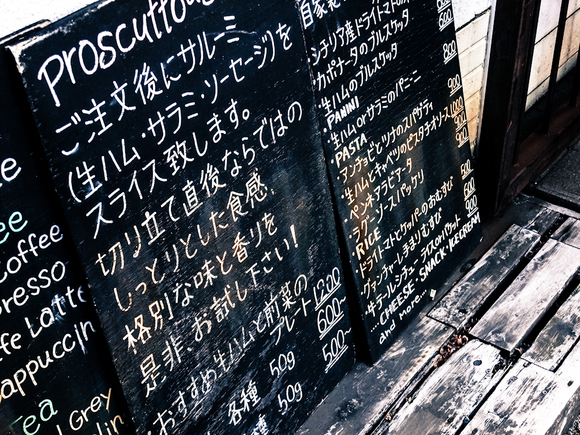 ee
Coffee
presso
ffe Latte
appuccin
Tea
l Grey
Proscuttou
ご注文後にサルーミ
(生ハム・サラミ・ソーセージ)を
スライス致します。
切り立て直後ならではの
しっとりとした食感、
格別な味と香りを
是非、お試し下さい!
おすすめ生ハムと前菜の
プレート 1200
各種 50g 600~
50g 500~
シチリア産ドライトマトの
カポナータのブルスケッタ 600
生ハムのブルスケッタ 800
PANINI
生ハムorサラミのパニーニ 900
PASTA
アンチョビとツナのスパゲティ 900
生ハムとキャベツのピスタチオソース 1000
ペンネアラビアータ 900
ラグーソースパッケリ
RICE
ドライトマトとケッパーのおむすび 500
グアンチャーレしまりむすび
...CHEESE, SNACK, ICECREAM
and more...